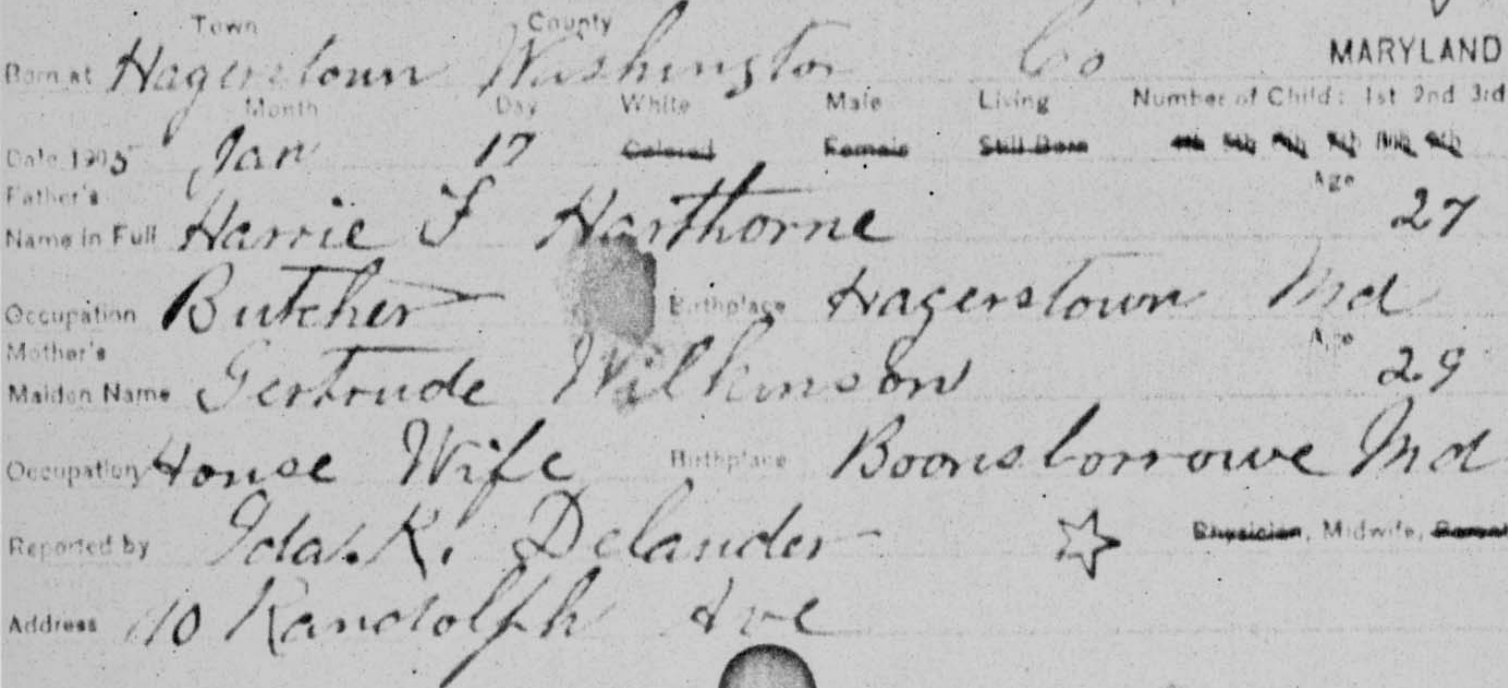 Town County
Born at Hagerstown Washington Co MARYLAND
Month Day White Male Living Number of Child: 1st 2nd 3rd
Date 1905 Jan 17 Colored Female Still Born
Father's Age
Name in Full Harrie F Harthorne 27
Occupation Butcher Birthplace Hagerstown Md
Mother's Age
Maiden Name Gertrude Wilkinson 29
Occupation House Wife Birthplace Boonsborrowe Md
Reported by Ida. K. Delander Physician, Midwife,
Address Randolph Ave